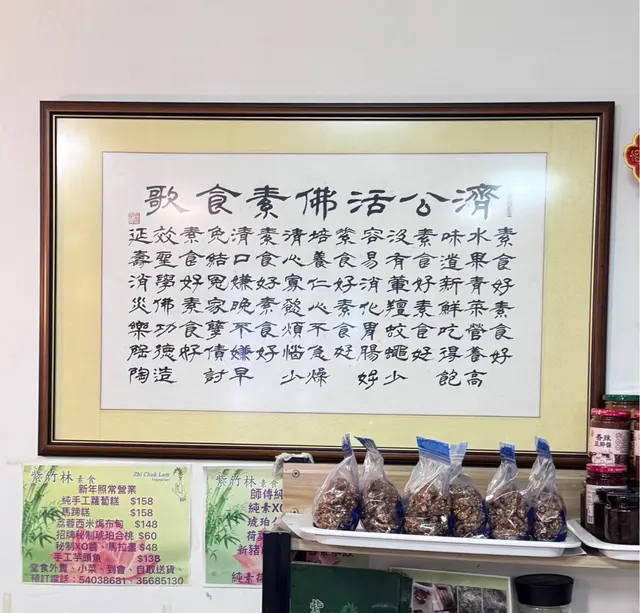 濟公活佛素食歌
素食好素食好
水果青菜營養高
味道新鮮吃得飽
素食好素食好
沒有葷羶蚊蠅少
容易消化胃腸好
素食好素食好
培養仁心不急燥
清心寡慾煩惱少
素食好素食好
清口嫌晚不嫌早
免結冤家孽債討
素食好素食好
效聖學佛功德造
延壽消災樂陶陶
紫竹林 素食
Zhi Chuk Lam
Vegetarian
新年照常營業
純手工蘿蔔糕 $158
馬蹄糕 $158
荔蓉西米焗布甸 $148
招牌秘制琥珀合桃 $60
秘制XO醬、馬拉盞 $48
手工芋頭魚 $138
堂食外賣、小菜、到會、自取送貨、
預訂電話：54038681、35685130
紫竹林 素食
師傅純
純素XO
琥珀合
荷
新豬
純素荷
香辣
豆豉醬